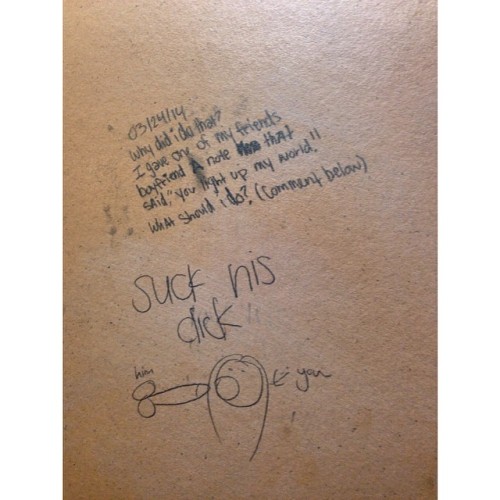 03/24/14
Why did i do that?
I gave one of my friends
boyfriend A note that
said, "you light up my world!"
What should i do? (Comment below)
suck his
dick!!
him
you